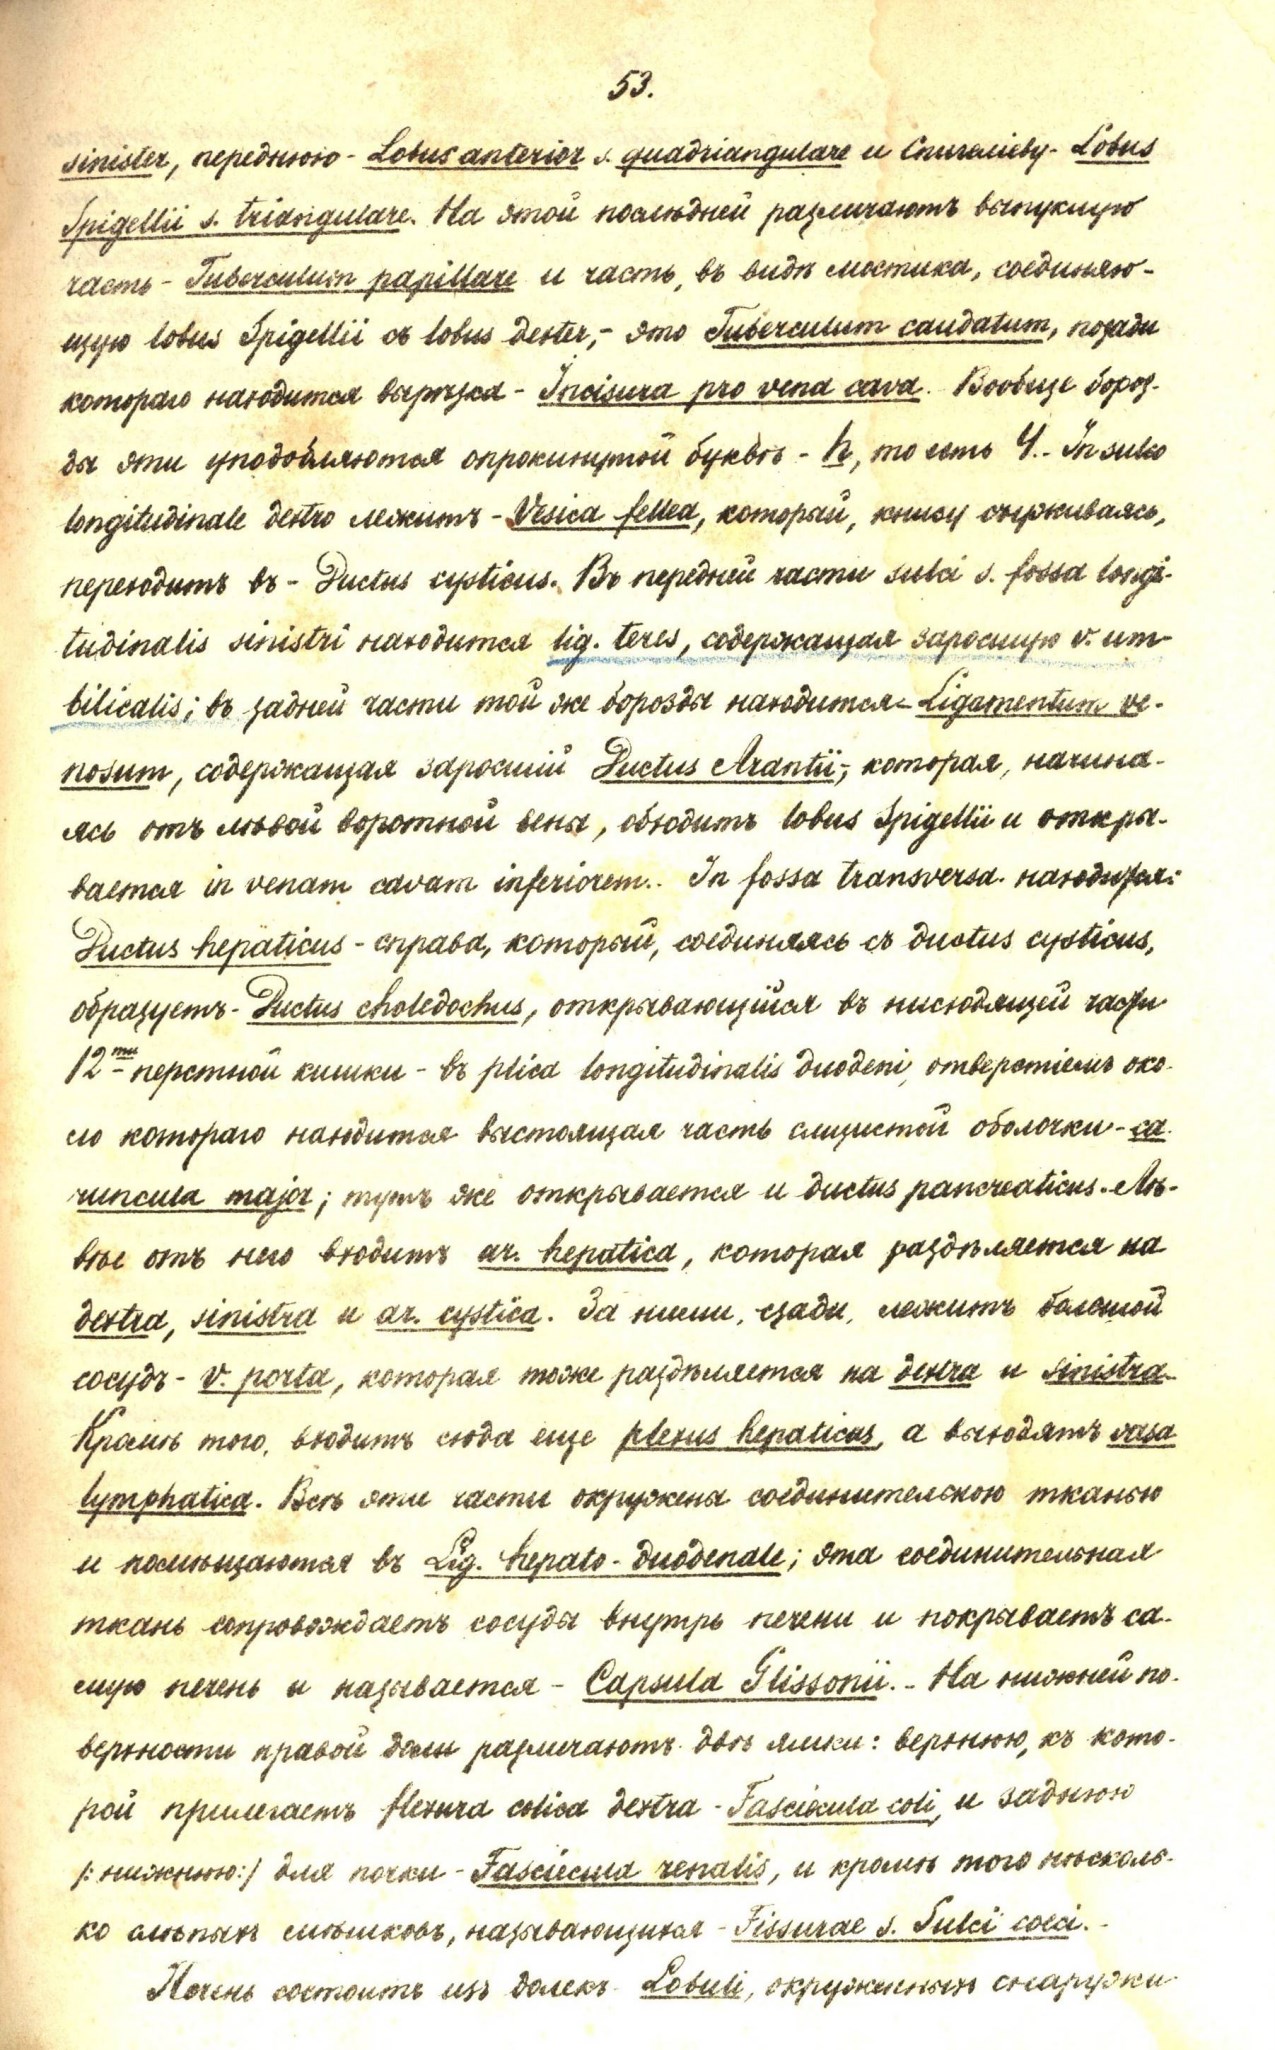 53.
sinister, переднюю - Lobus anterior s. quadriangulare и Спигеліеву - Lobus
Spigellii s. triangulare. На этой послѣдней различаютъ выпуклую
часть - Tuberculum papillare и часть, въ видѣ мостика, соединяю-
щую lobus Spigellii съ lobus dexter, - это Tuberculum caudatum, позади
котораго находится вырѣзка - Incisura pro vena cava. Вообще бороз-
ды эти уподобляются опрокинутой буквѣ - h, то есть Ч. - In sulco
longitudinale dextro лежитъ - Vesica fellea, который, книзу съуживаясь,
переходитъ въ - Ductus cysticus. Въ передней части sulci s. fossa longi-
tudinalis sinistri находится lig. teres, содержащая заросшую v. um-
bilicalis; въ задней части той же борозды находится - Ligamentum ve-
nosum, содержащая заросшій Ductus Arantii, которая, начина-
ясь отъ лѣвой воротной вены, обходитъ lobus Spigellii и откры-
вается in venam cavam inferiorem. - In fossa transversa находятся:
Ductus hepaticus - справа, который, соединяясь съ ductus cysticus,
образуетъ - Ductus choledochus, открывающійся въ нисходящей части
12ти перстной кишки - въ plica longitudinalis duodeni, отверстіемъ око-
ло котораго находится выстоящая часть слизистой оболочки - ca-
runcula major; тутъ же открывается и ductus pancreaticus. Лѣ-
вѣе отъ него входитъ ar. hepatica, которая раздѣляется на
dextra, sinistra и ar. cystica. За ними, сзади, лежитъ большой
сосудъ - v. porta, которая тоже раздѣляется на dextra и sinistra.
Кромѣ того, входитъ сюда еще plexus hepaticus, а выходятъ vasa
lymphatica. Всѣ эти части окружены соединительною тканью
и помѣщаются въ Lig. hepato-duodenale; эта соединительная
ткань сопровождаетъ сосуды внутрь печени и покрываетъ са-
мую печень и называется - Capsula Glissonii. - На нижней по-
верхности правой доли различаютъ двѣ ямки: верхнюю, къ кото-
рой прилегаетъ flexura colica dextra - Fasciecula coli, и заднюю
/:нижнюю:/ для почки - Fasciecula renalis, и кромѣ того нѣсколь-
ко слѣпыхъ мѣшковъ, называющихся - Fissurae s. Sulci coeci. -
Печень состоитъ изъ долекъ - Lobuli, окруженныхъ снаружи